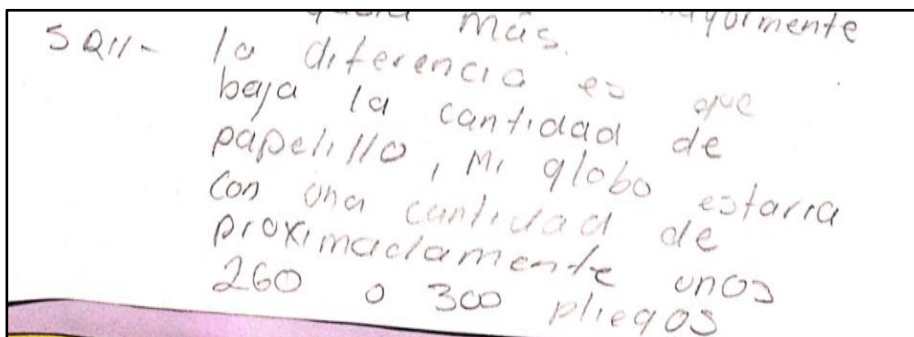 más. mayormente
5 Q11- la diferencia es que
baja la cantidad de
papelillo, Mi globo estarra
con una cantidad de
proximadamente unos
260 o 300 pliegos